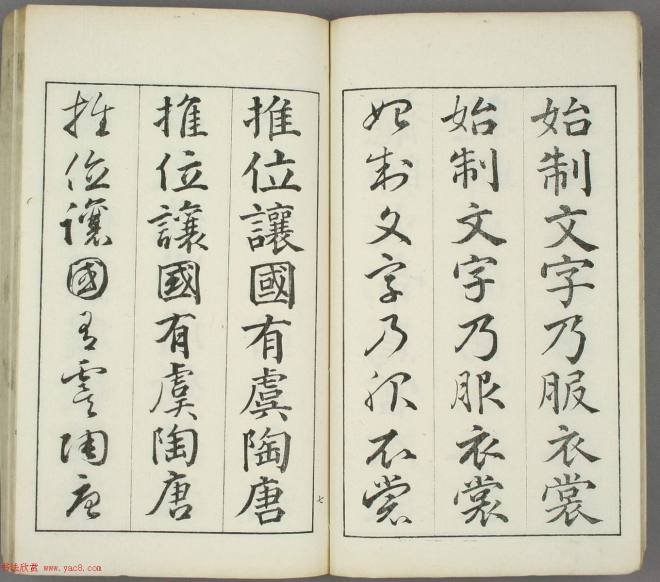 始制文字乃服衣裳
始制文字乃服衣裳
始制文字乃服衣裳
七
推位讓國有虞陶唐
推位讓國有虞陶唐
推位讓國有虞陶唐
书法欣赏 www.yac8.com